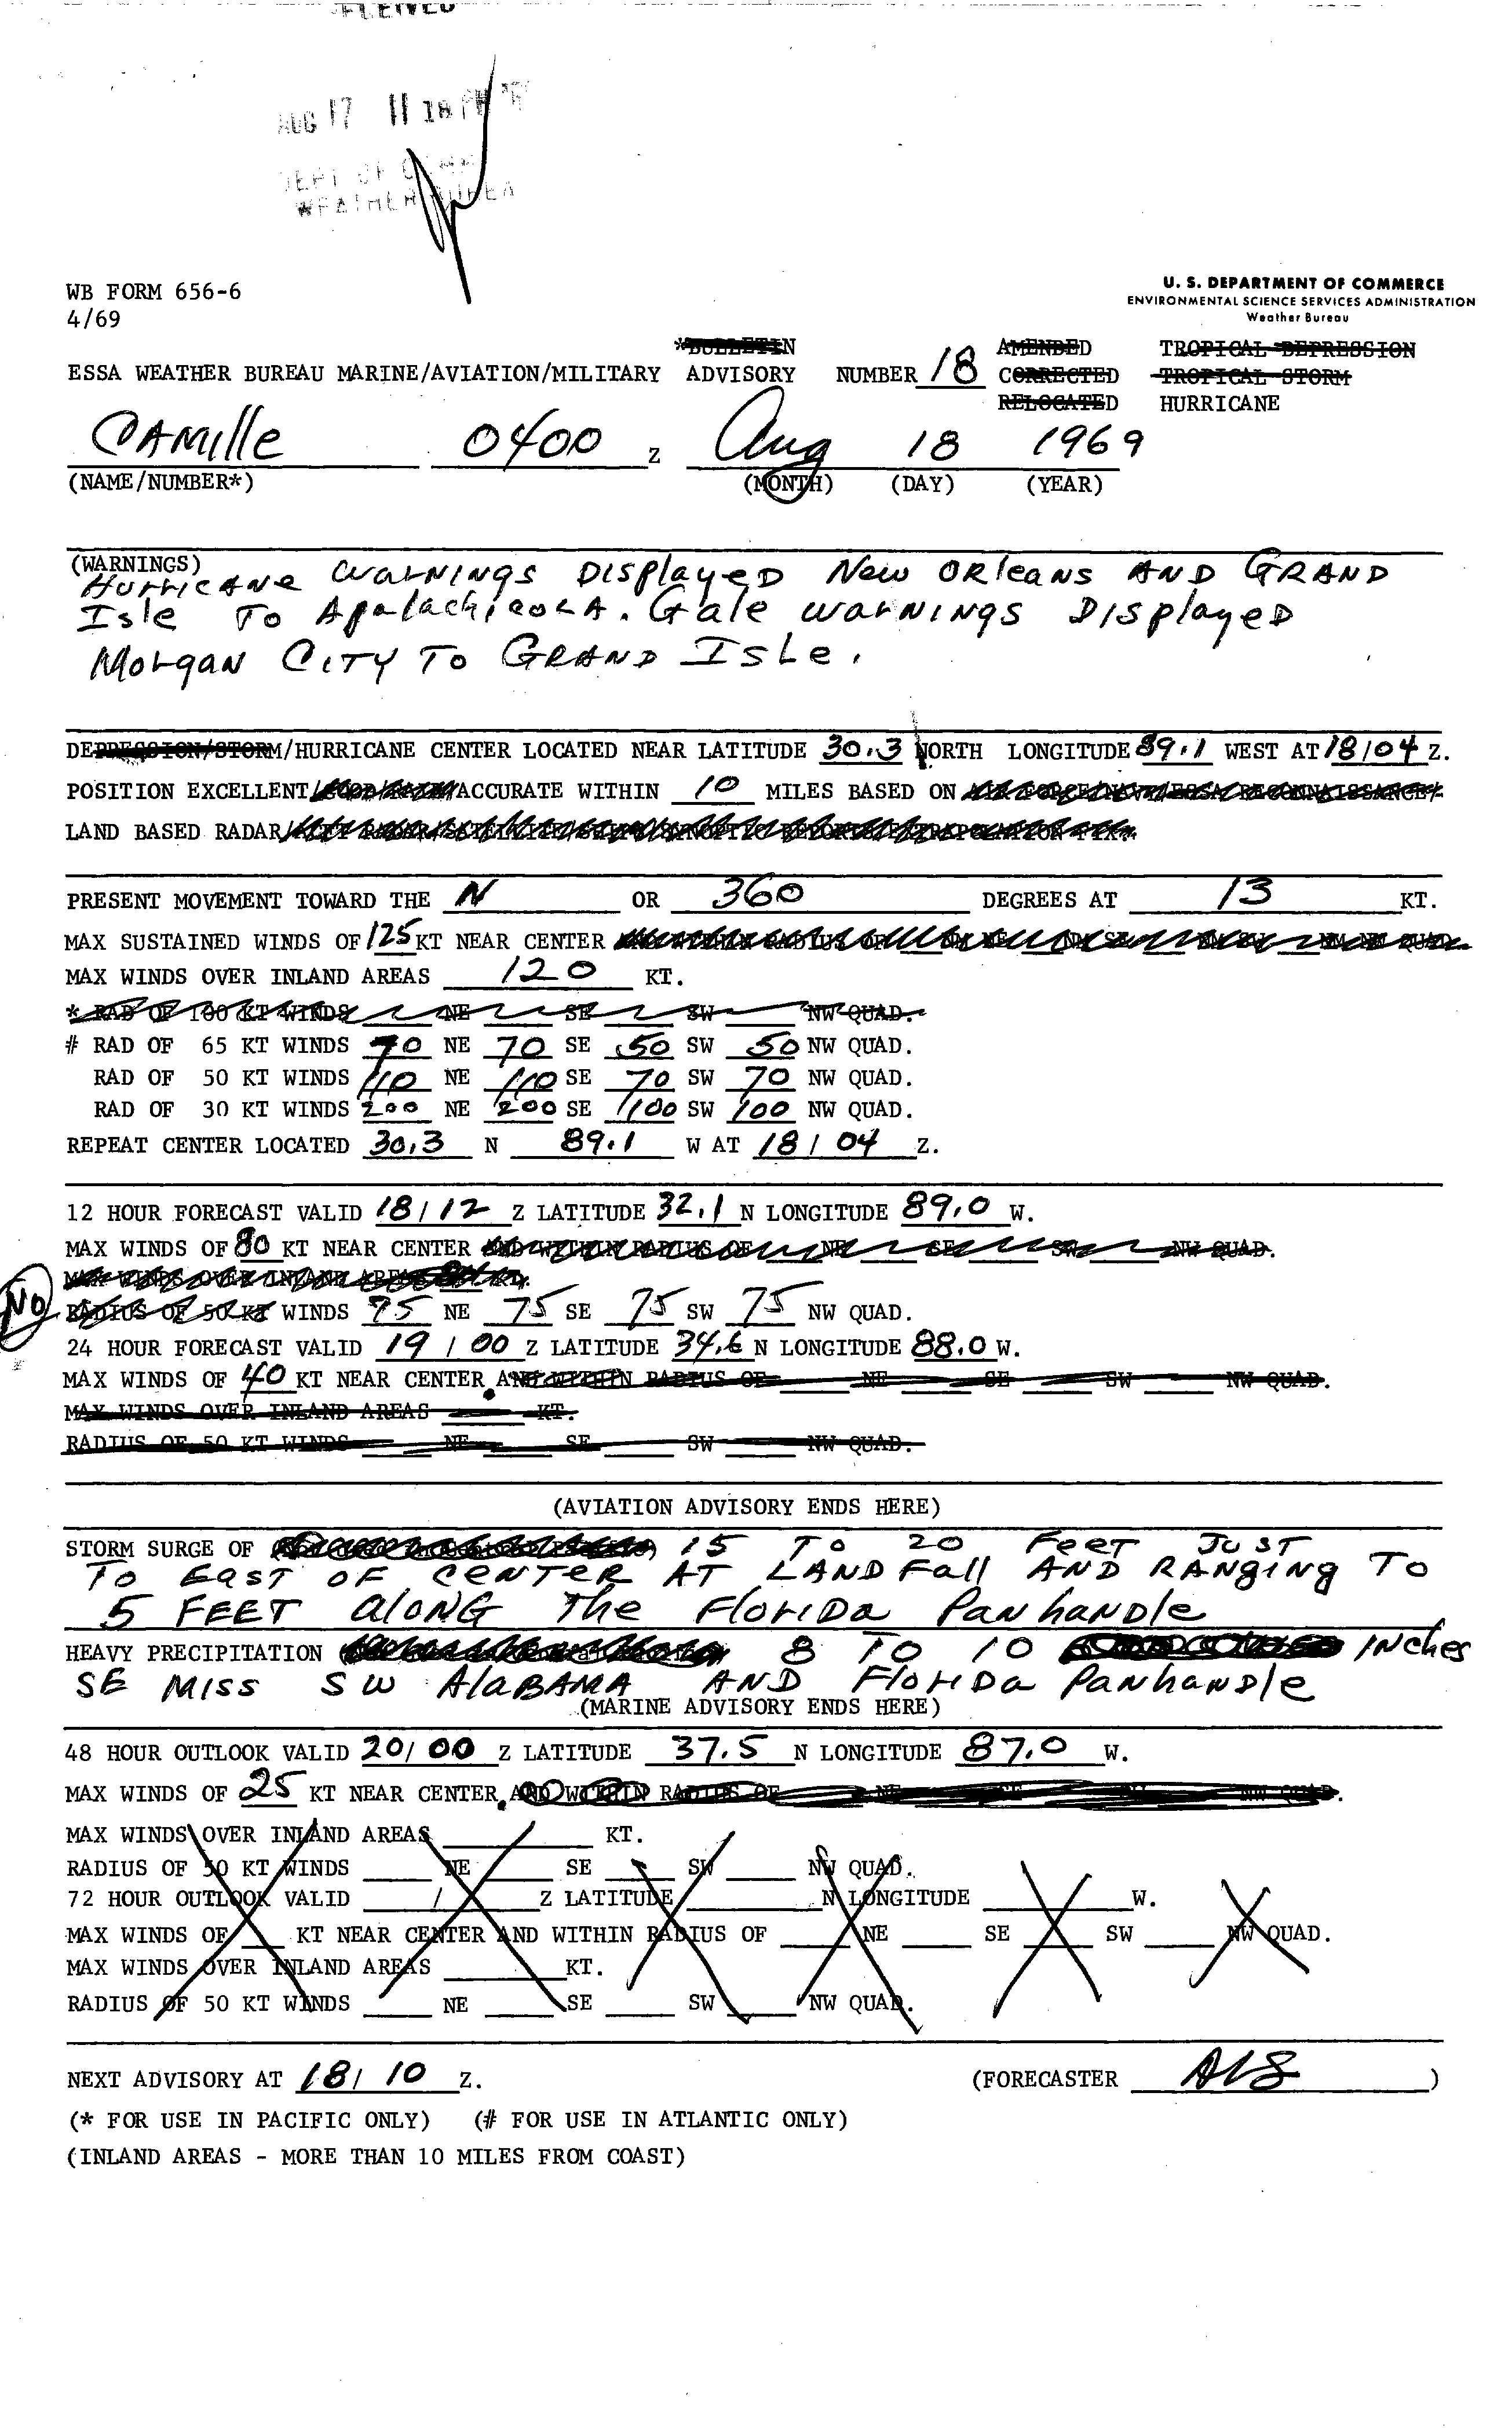 AUG 17 11 18 PM
DEPT OF COMM
WEATHER BUREA
WB FORM 656-6
4/69
U. S. DEPARTMENT OF COMMERCE
ENVIRONMENTAL SCIENCE SERVICES ADMINISTRATION
Weather Bureau
*BULLETIN AMENDED TROPICAL DEPRESSION
ESSA WEATHER BUREAU MARINE/AVIATION/MILITARY ADVISORY NUMBER 18 CORRECTED TROPICAL STORM
RELOCATED HURRICANE
CAMille 0400 Z Aug 18 1969
(NAME/NUMBER*) (MONTH) (DAY) (YEAR)
(WARNINGS)
HurricANe warNINgs DISplayeD New ORleans AND GRAND
Isle To ApalachicoLA. Gale warNINgs DISplayeD
MorgaN CITY To GRAND ISLe.
DEPRESSION/STORM/HURRICANE CENTER LOCATED NEAR LATITUDE 30.3 NORTH LONGITUDE 89.1 WEST AT 18/04 Z.
POSITION EXCELLENT/ ACCURATE WITHIN 10 MILES BASED ON AIR FORCE/NAVY/ESSA RECONNAISSANCE/
LAND BASED RADAR/
PRESENT MOVEMENT TOWARD THE N OR 360 DEGREES AT 13 KT.
MAX SUSTAINED WINDS OF 125 KT NEAR CENTER
MAX WINDS OVER INLAND AREAS 120 KT.
* RAD OF 100 KT WINDS NE SE SW NW QUAD.
# RAD OF 65 KT WINDS 70 NE 70 SE 50 SW 50 NW QUAD.
RAD OF 50 KT WINDS 110 NE 110 SE 70 SW 70 NW QUAD.
RAD OF 30 KT WINDS 200 NE 200 SE 100 SW 100 NW QUAD.
REPEAT CENTER LOCATED 30.3 N 89.1 W AT 18 / 04 Z.
12 HOUR FORECAST VALID 18 / 12 Z LATITUDE 32.1 N LONGITUDE 89.0 W.
MAX WINDS OF 80 KT NEAR CENTER AND WITHIN RADIUS OF NE SE SW NW QUAD.
MAX WINDS OVER INLAND AREAS KT.
No RADIUS OF 50 KT WINDS 75 NE 75 SE 75 SW 75 NW QUAD.
24 HOUR FORECAST VALID 19 / 00 Z LATITUDE 34.6 N LONGITUDE 88.0 W.
MAX WINDS OF 40 KT NEAR CENTER. AND WITHIN RADIUS OF NE SE SW NW QUAD.
MAX WINDS OVER INLAND AREAS KT.
RADIUS OF 50 KT WINDS NE SE SW NW QUAD.
(AVIATION ADVISORY ENDS HERE)
STORM SURGE OF 15 To 20 FeeT JUST
To EaST OF CENTER AT LAND Fall AND RANgINg To
5 FEET aloNG The FlorIDa PanhaNDle
HEAVY PRECIPITATION 8 To 10 INches
SE MISS SW AlaBAMA AND FlorIDa PanhaNDle
(MARINE ADVISORY ENDS HERE)
48 HOUR OUTLOOK VALID 20/ 00 Z LATITUDE 37.5 N LONGITUDE 87.0 W.
MAX WINDS OF 25 KT NEAR CENTER. AND WITHIN RADIUS OF NE SE SW NW QUAD.
MAX WINDS OVER INLAND AREAS KT.
RADIUS OF 50 KT WINDS NE SE SW NW QUAD.
72 HOUR OUTLOOK VALID / Z LATITUDE N LONGITUDE W.
MAX WINDS OF KT NEAR CENTER AND WITHIN RADIUS OF NE SE SW NW QUAD.
MAX WINDS OVER INLAND AREAS KT.
RADIUS OF 50 KT WINDS NE SE SW NW QUAD.
NEXT ADVISORY AT 18/ 10 Z. (FORECASTER )
(* FOR USE IN PACIFIC ONLY) (# FOR USE IN ATLANTIC ONLY)
(INLAND AREAS - MORE THAN 10 MILES FROM COAST)